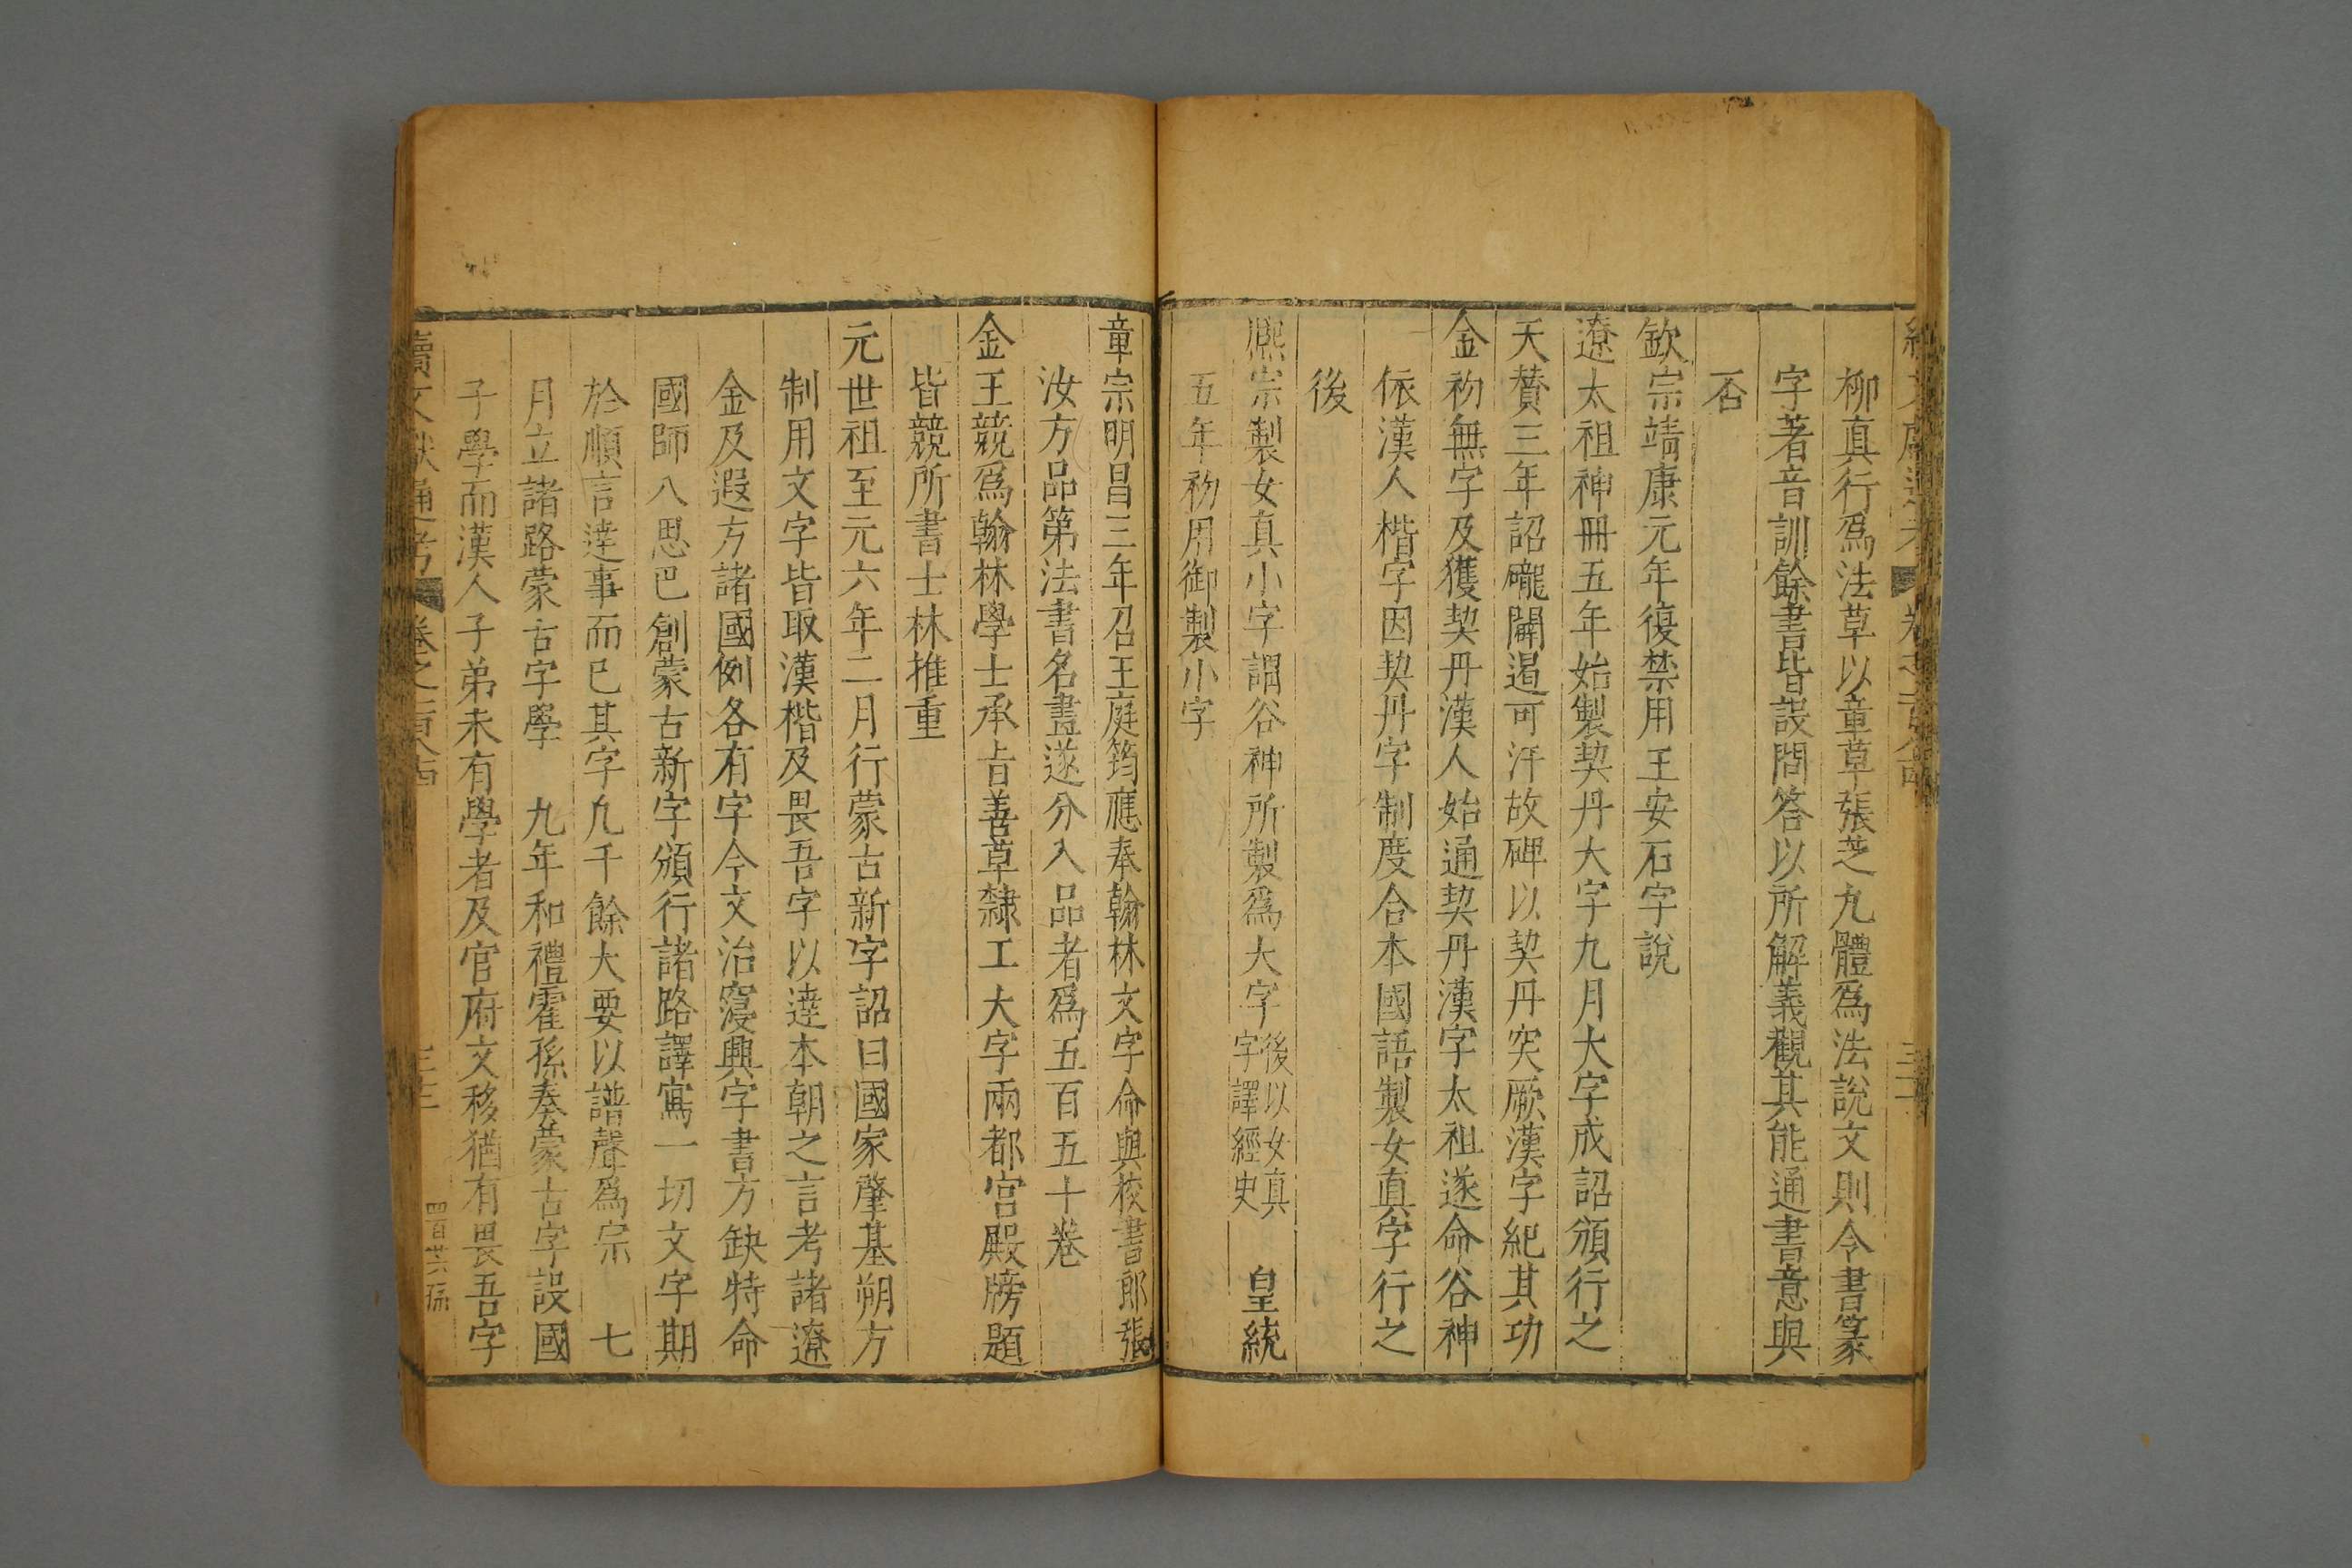 柳真行爲法草以章草張芝九體爲法說文則令書篆
字著音訓餘書皆設問答以所解義觀其能通書意與
否
欽宗靖康元年復禁用王安石字說
遼太祖神冊五年始製契丹大字九月大字成詔頒行之
天贊三年詔礲闢遏可汗故碑以契丹突厥漢字紀其功
金初無字及獲契丹漢人始通契丹漢字太祖遂命谷神
依漢人楷字因契丹字制度合本國語製女真字行之
後
熈宗製女真小字謂谷神所製爲大字後以女真字譯經史 皇統
五年初用御製小字
章宗明昌三年召王庭筠應奉翰林文字命與校書郎張
汝方品第法書名畫遂分入品者爲五百五十卷
金王競爲翰林學士承旨善草隸工大字兩都宮殿牓題
皆競所書士林推重
元世祖至元六年二月行蒙古新字詔曰國家肇基朔方
制用文字皆取漢楷及畏吾字以達本朝之言考諸遼
金及遐方諸國例各有字今文治寖興字書方缺特命
國師八思巴創蒙古新字頒行諸路譯寫一切文字期
於順言達事而已其字凡千餘大要以諧聲爲宗 七
月立諸路蒙古字學 九年和禮霍孫奏蒙古字設國
子學而漢人子弟未有學者及官府文移猶有畏吾字
續文獻通考 卷之一百八十四